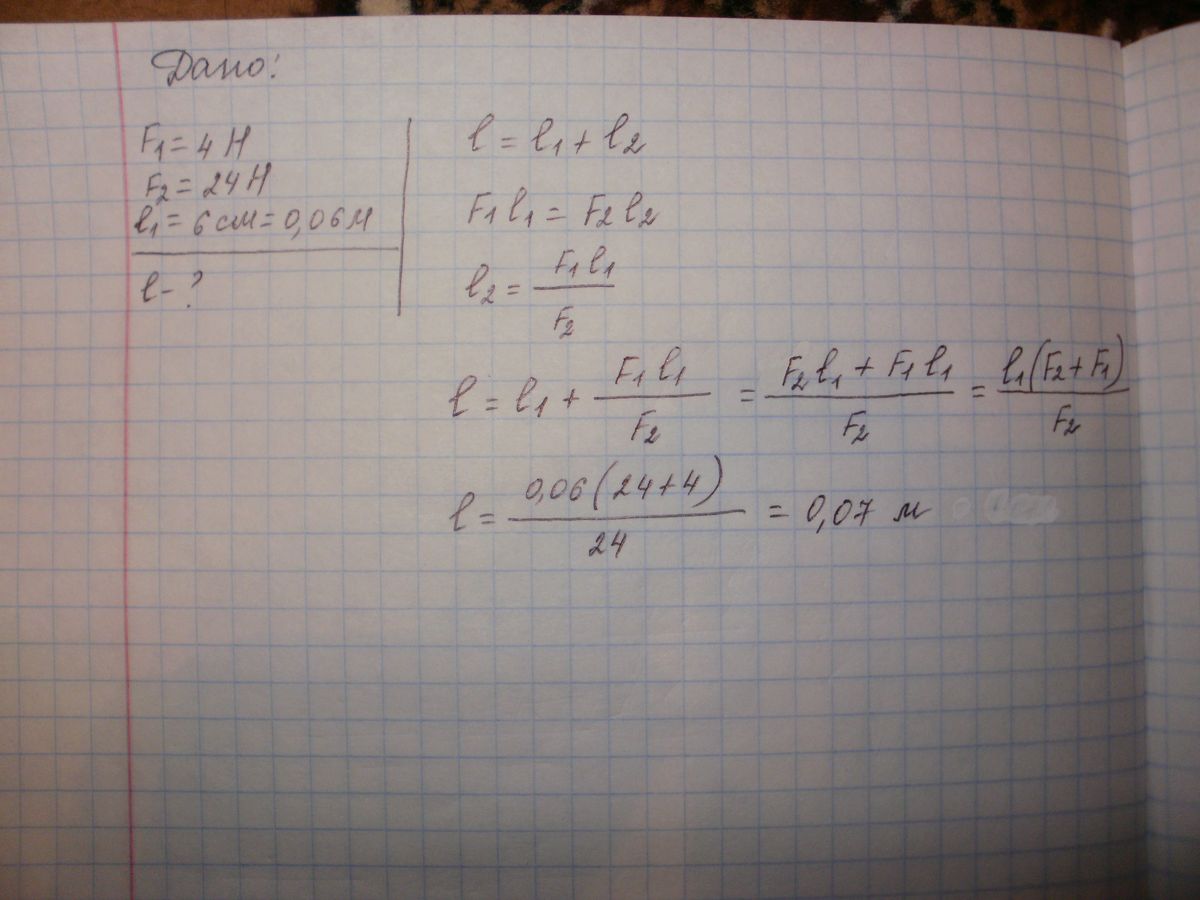 Дано:
F₁ = 4 Н
F₂ = 24 Н
l₁ = 6 см = 0,06 м
l - ?
l = l₁ + l₂
F₁ l₁ = F₂ l₂
l₂ = F₁ l₁ / F₂
l = l₁ + F₁ l₁ / F₂ = F₂ l₁ + F₁ l₁ / F₂ = l₁ (F₂ + F₁) / F₂
l = 0,06 (24 + 4) / 24 = 0,07 м